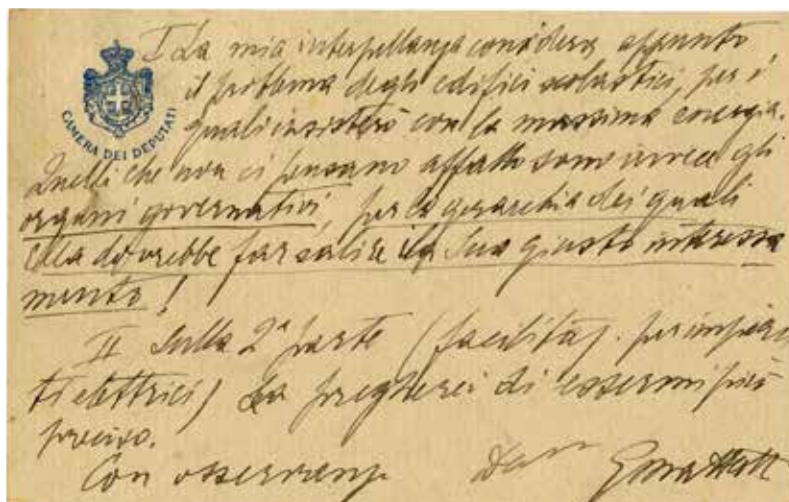 I La mia interpellanza considera appunto
il problema degli edifici scolastici, per i
quali insisterò con la massima energia.
CAMERA DEI DEPUTATI
Quelli che non ci pensano affatto sono invece gli
organi governativi, per la gerarchia dei quali
Ella dovrebbe far salire il Suo giusto interessa
mento!
II Sulla 2ª parte (facilitaz. per impian
ti elettrici) La pregherei di essermi più
preciso.
Con osservanza